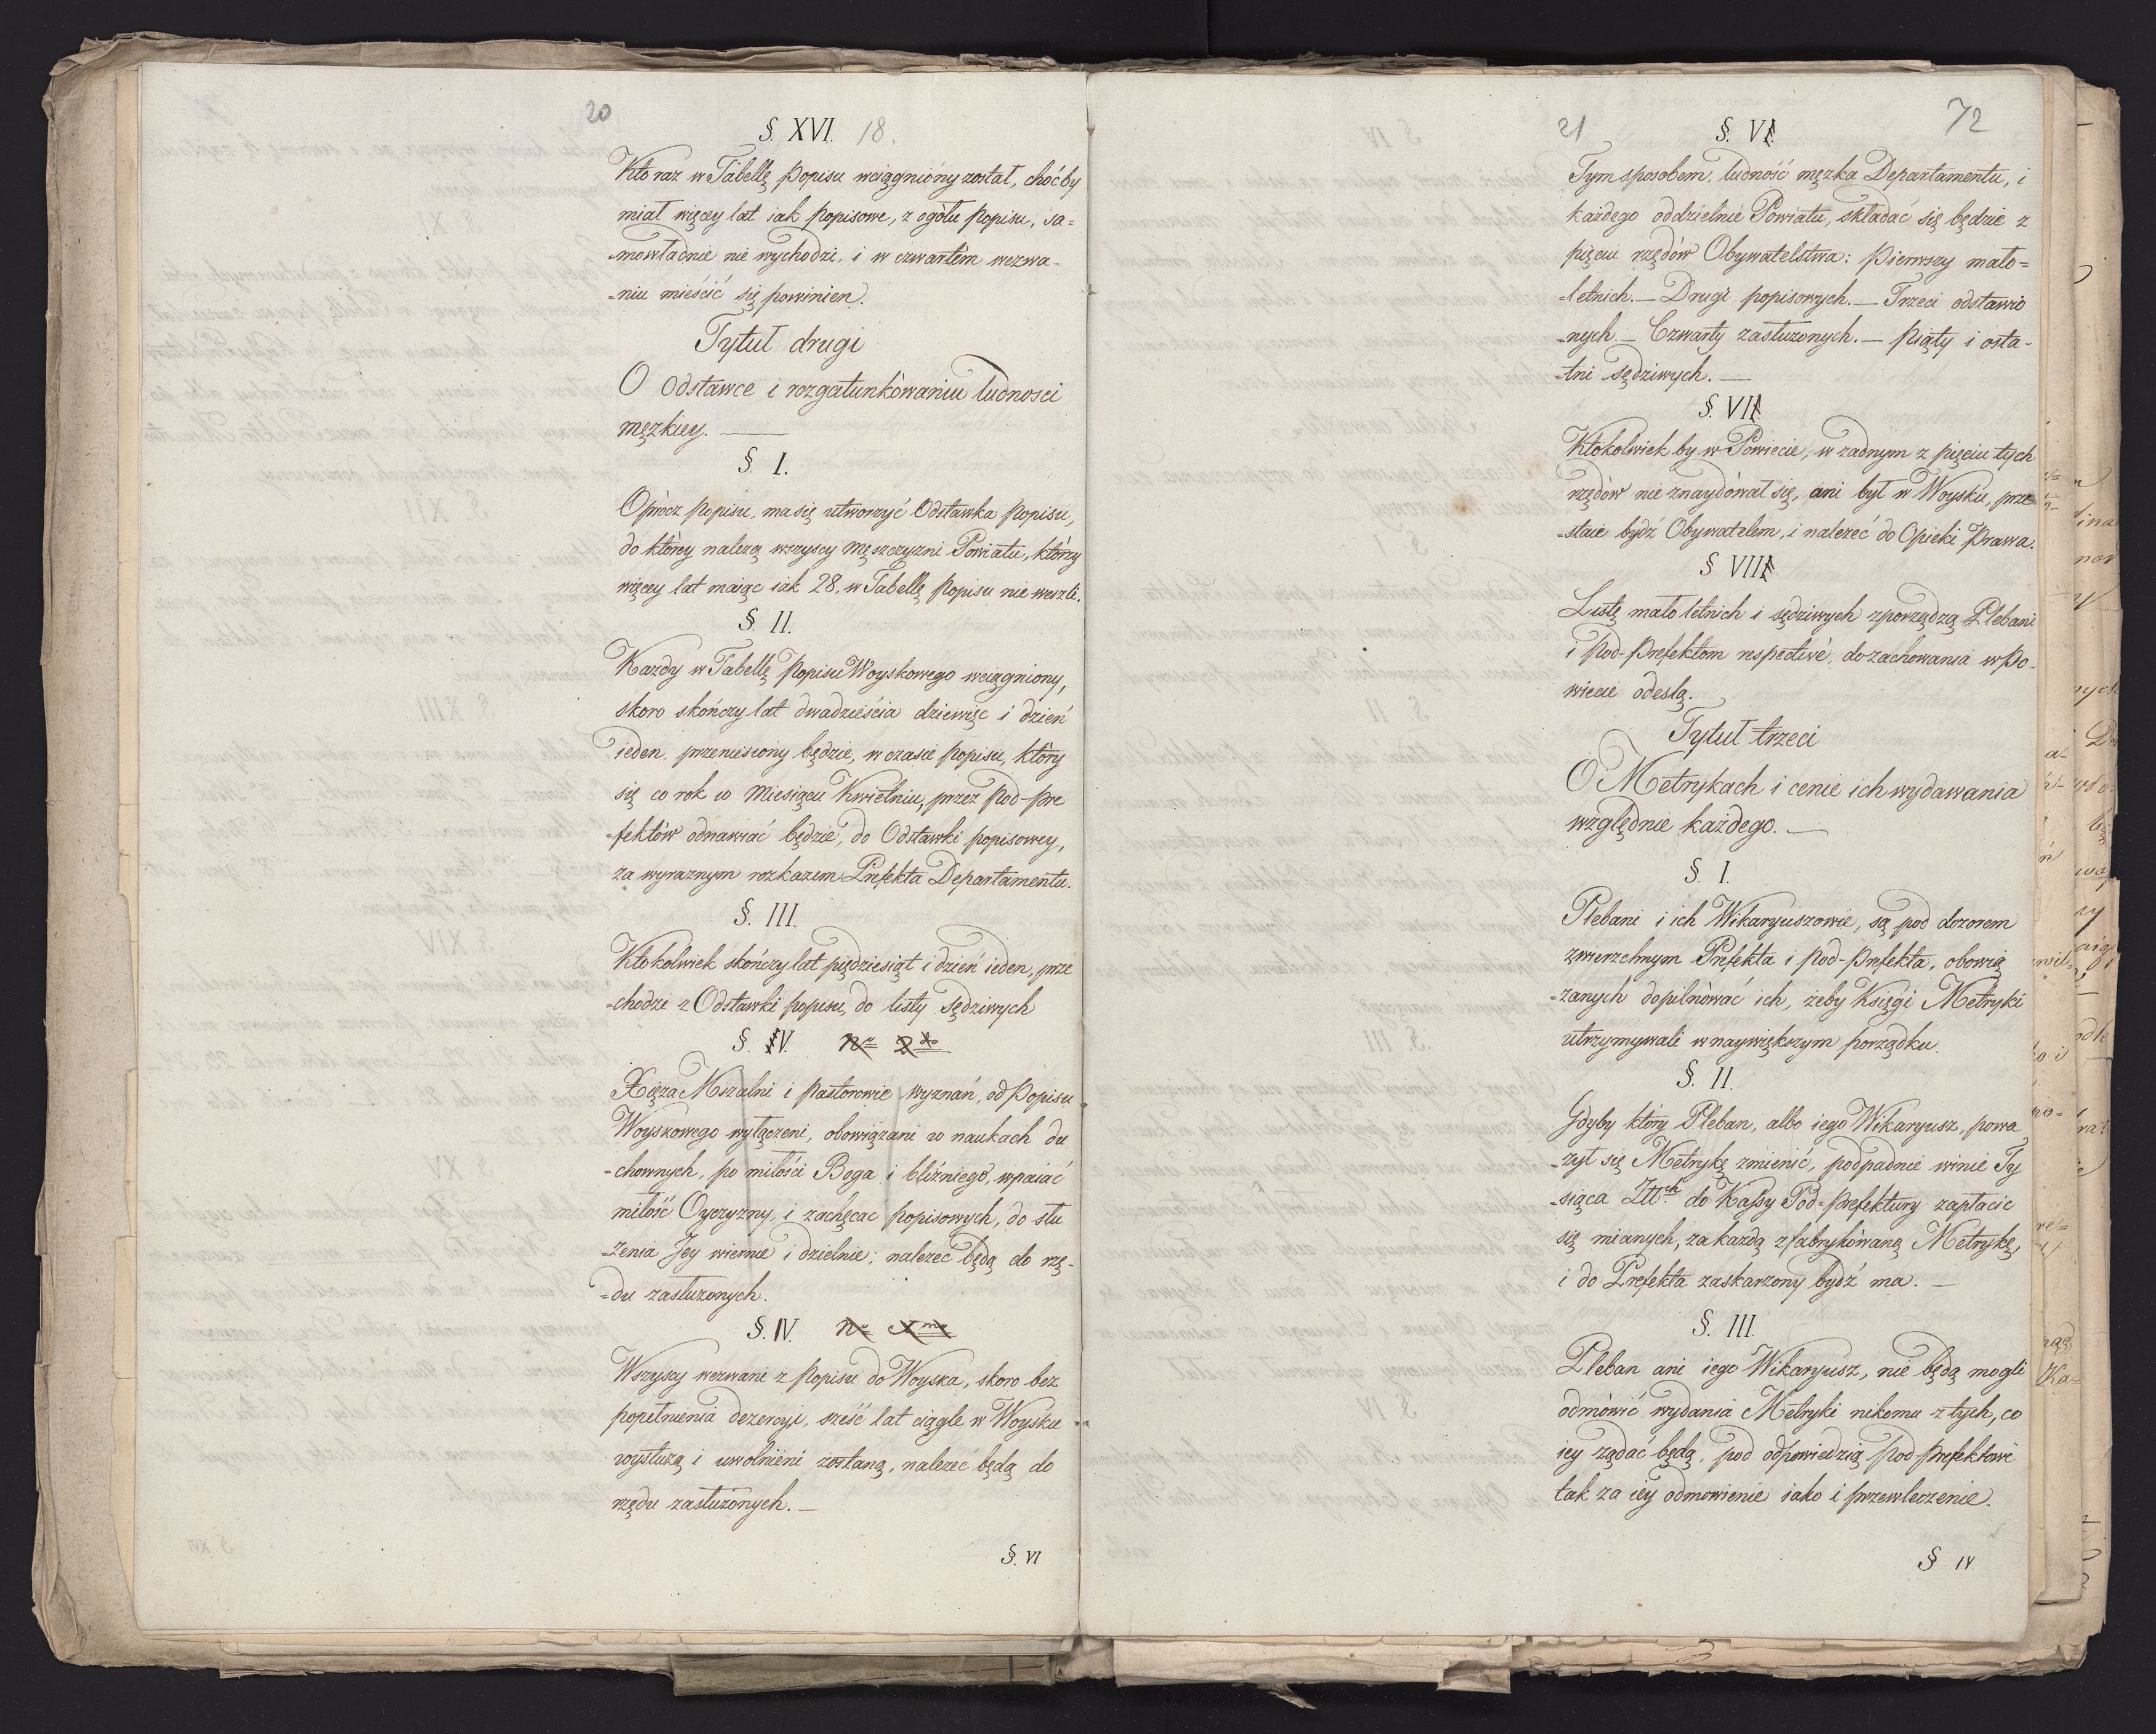 20
§. XVI. 18.
Kto raz w Tabellę popisu wciągniony został, choćby
miał więcey lat iak popisowe, z ogółu popisu, sa=
=mowładnie nie wychodzi, i w czwartém wezwa-
-niu mieścić się powinien.
Tytuł drugi
O Odstawce i rozgatunkowaniu ludnosci
męzkiey. —
§. I.
Oprócz popisu, ma się utworzyć Odstawka popisu,
do którey nalezą wszyscy męszczyzni Powiatu, którzy
więcey lat maiąc iak 28. w Tabellę popisu nie weszli.
§. II.
Kazdy w Tabellę popisu Woyskowego wciągniony,
skoro skończy lat dwadzieścia dziewięc i dzień
ieden, przeniesiony będzie, w czasie popisu, który
się co rok w Miesiącu Kwietniu, przez Pod-Pre
-fektów odnawiać będzie, do Odstawki popisowey,
za wyraznym rozkazem Prefekta Departamentu.
§. III.
Ktokolwiek skończy lat piędziesiąt i dzień ieden, prze
-chodzi z Odstawki popisu, do listy Sędziwych
§. IV. No 2do
Xięża Mszalni i Pastorowie wyznań, od Popisu
Woyskowego wyłączeni, obowiązani w naukach du
-chownych, po miłości Boga i bliźniego, wpaiać
miłość Oyczyzny, i zachęcac popisowych, do słu
-żenia Jey wiernie i dzielnie; nalezec będą do rzę-
=du zasłuzonych.
§. IV. No
Wszyscy wezwani z Popisu do Woyska, skoro bez
popełnienia dezercyi, sześć lat ciągle w Woysku
wysłuzą i uwolnieni zostaną, nalezeć będą do
rzędu zasłuzonych. —
§. VI
21
72
§. VI.
Tym sposobem, ludność męzka Departamentu, i
każdego oddzielnie Powiatu, składać się będzie z
pięciu rzędów Obywatelstwa: Pierwszy mało=
-letnich. — Drugi popisowych. — Trzeci odstawio
-nych. — Czwarty zasłuzonych. — Piąty i osta-
-tni sędziwych. —
§. VII.
Ktokolwiek by w Powiecie, w zadnym z pięciu tych
rzędów nie znaydował się, ani był w Woysku, prze
-staie bydź Obywatelem, i nalezeć do Opieki Prawa.
§ VIII
Listę mało letnich i sędziwych zporządzą Plebani
i Pod-Prefektom respective, do zachowania w Po-
wiecie odeslą.
Tytuł trzeci
O Metrykach i cenie ich wydawania
względnie każdego. —
§. I.
Plebani i ich Wikaryuszowie, są pod dozorem
zwierzchnym Prefekta i Pod-Prefekta, obowią
=zanych dopilnować ich, żeby Księgi Metryki
utrzymywali w naywiększym porządku.
§. II.
Gdyby który Pleban, albo iego Wikaryusz, powa
-zył się Metrykę zmienić, podpadnie winie Ty
-siąca Złtch do Kassy Pod-Prefektury zapłacic
się mianych, za każdą zfabrykowaną Metrykę,
i do Prefekta zaskarzony bydź ma. —
§. III.
Pleban ani iego Wikaryusz, nie będą mogli
odmówić wydania Metryki nikomu z tych, co
iey ządać będą, pod odpowiedzią Pod-Prefektowi
tak za iey odmowienie iako i przewleczenie.
§ IV